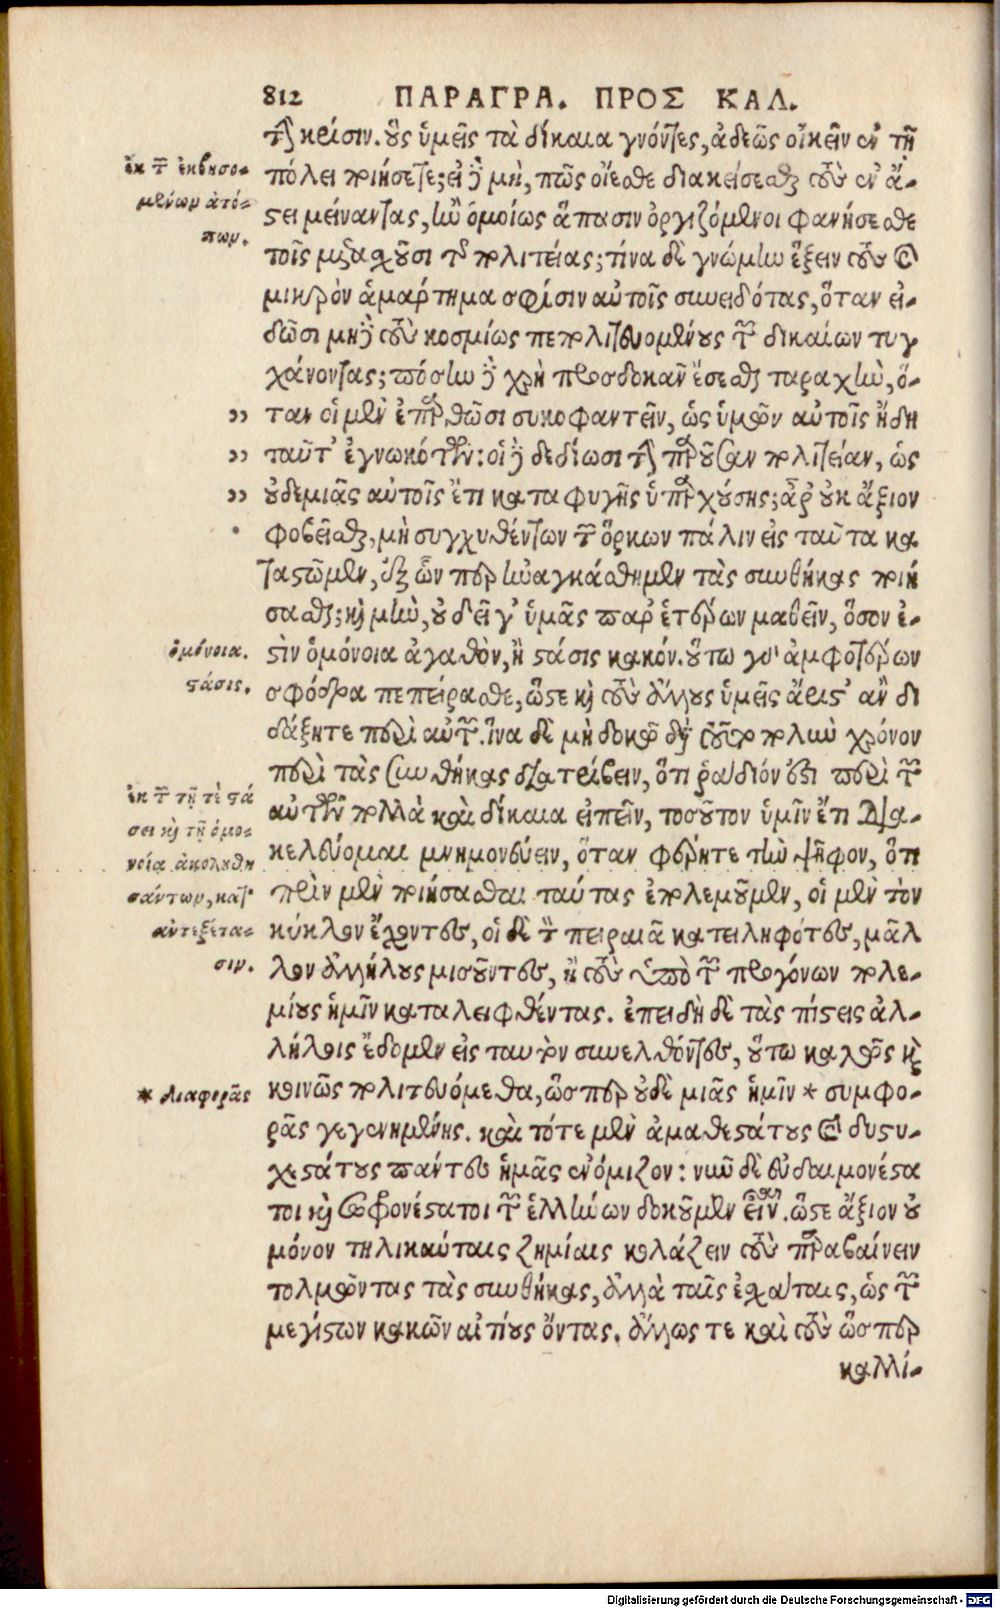 812 ΠΑΡΑΓΡΑ. ΠΡΟΣ ΚΑΛ.
τὴν κρίσιν. οὓς ὑμεῖς τὰ δίκαια γνόντες, ἀδεῶς οἰκεῖν ἐν τῇ
ἐκ τῶν ἐκβησο-
πόλει ποιήσετε; εἰ δὲ μὴ, πῶς οἴεσθε διακείσεσθαι τοὺς ἐν ἄ-
μένων ἀτό-
στει μείναντας, ἢν ὁμοίως ἅπασιν ὀργιζόμενοι φανήσεσθε
πων.
τοῖς μετασχοῦσι τῆς πολιτείας; τίνα δὲ γνώμην ἕξειν τοὺς καὶ
μικρὸν ἁμάρτημα σφίσιν αὐτοῖς συνειδότας, ὅταν εἰ-
δῶσι μηδὲ τοὺς κοσμίως πεπολιτευομένους τῶν δικαίων τυγ
χάνοντας; πόσην δὲ χρὴ προσδοκᾶν ἔσεσθαι ταραχὴν, ὅ-
ταν οἱ μὲν ἐπαρθῶσι συκοφαντεῖν, ὡς ὑμῶν αὐτοῖς ἤδη
ταῦτ' ἐγνωκότων: οἱ δὲ δεδίωσι τὴν παροῦσαν πολιτείαν, ὡς
οὐδεμιᾶς αὐτοῖς ἔτι καταφυγῆς ὑπαρχούσης; ἆρ' οὐκ ἄξιον
φοβεῖσθαι, μὴ συγχυθέντων τῶν ὅρκων πάλιν εἰς ταῦτα κα
ταστῶμεν, ἐξ ὧν περ ἠναγκάσθημεν τὰς συνθήκας ποιή
σασθαι; καὶ μὴν, οὐ δεῖ γ' ὑμᾶς παρ' ἑτέρων μαθεῖν, ὅσον ἐ-
ὁμόνοια.
στὶν ὁμόνοια ἀγαθὸν, ἢ στάσις κακόν. οὕτω γὰρ ἀμφοτέρων
στάσις.
σφόδρα πεπείρασθε, ὥστε καὶ τοὺς ἄλλους ὑμεῖς ἄριστ' ἂν δι
δάξητε περὶ αὐτῶν. ἵνα δὲ μὴ δοκῶ διὰ τοῦτο πολὺν χρόνον
περὶ τὰς συνθήκας διατρίβειν, ὅτι ῥᾴδιόν ἐστι περὶ τῶν
ἐκ τῶν τῇ τε στά
αὐτῶν πολλὰ καὶ δίκαια εἰπεῖν, τοσοῦτον ὑμῖν ἔτι δια-
σει καὶ τῇ ὁμο-
κελεύομαι μνημονεύειν, ὅταν φέρητε τὴν ψῆφον, ὅτι
νοίᾳ ἀκολουθη
πρὶν μὲν ποιήσασθαι ταύτας ἐπολεμοῦμεν, οἱ μὲν τὸν
σάντων, κατ'
κύκλον ἔχοντες, οἱ δὲ τὸν πειραιᾶ κατειληφότες, μᾶλ
ἀντεξέτα-
λον ἀλλήλους μισοῦντες, ἢ τοὺς ὑπὸ τῶν προγόνων πολε-
σιν.
μίους ἡμῖν καταλειφθέντας. ἐπειδὴ δὲ τὰς πίστεις ἀλ-
λήλοις ἔδομεν εἰς ταυτὸν συνελθόντες, οὕτω καλῶς καὶ
* διαφορᾶς
κοινῶς πολιτευόμεθα, ὥσπερ οὐδὲ μιᾶς ἡμῖν * συμφο-
ρᾶς γεγενημένης. καὶ τότε μὲν ἀμαθεστάτους καὶ δυστυ-
χεστάτους πάντες ἡμᾶς ἐνόμιζον: νῦν δὲ εὐδαιμονέστα
τοι καὶ σωφρονέστατοι τῶν ἑλλήνων δοκοῦμεν εἶναι. ὥστε ἄξιον οὐ
μόνον τηλικαύταις ζημίαις κολάζειν τοὺς παραβαίνειν
τολμῶντας τὰς συνθήκας, ἀλλὰ ταῖς ἐσχάταις, ὡς τῶν
μεγίστων κακῶν αἰτίους ὄντας. ἄλλως τε καὶ τοὺς ὥσπερ
καλλί-
Digitalisierung gefördert durch die Deutsche Forschungsgemeinschaft - DFG